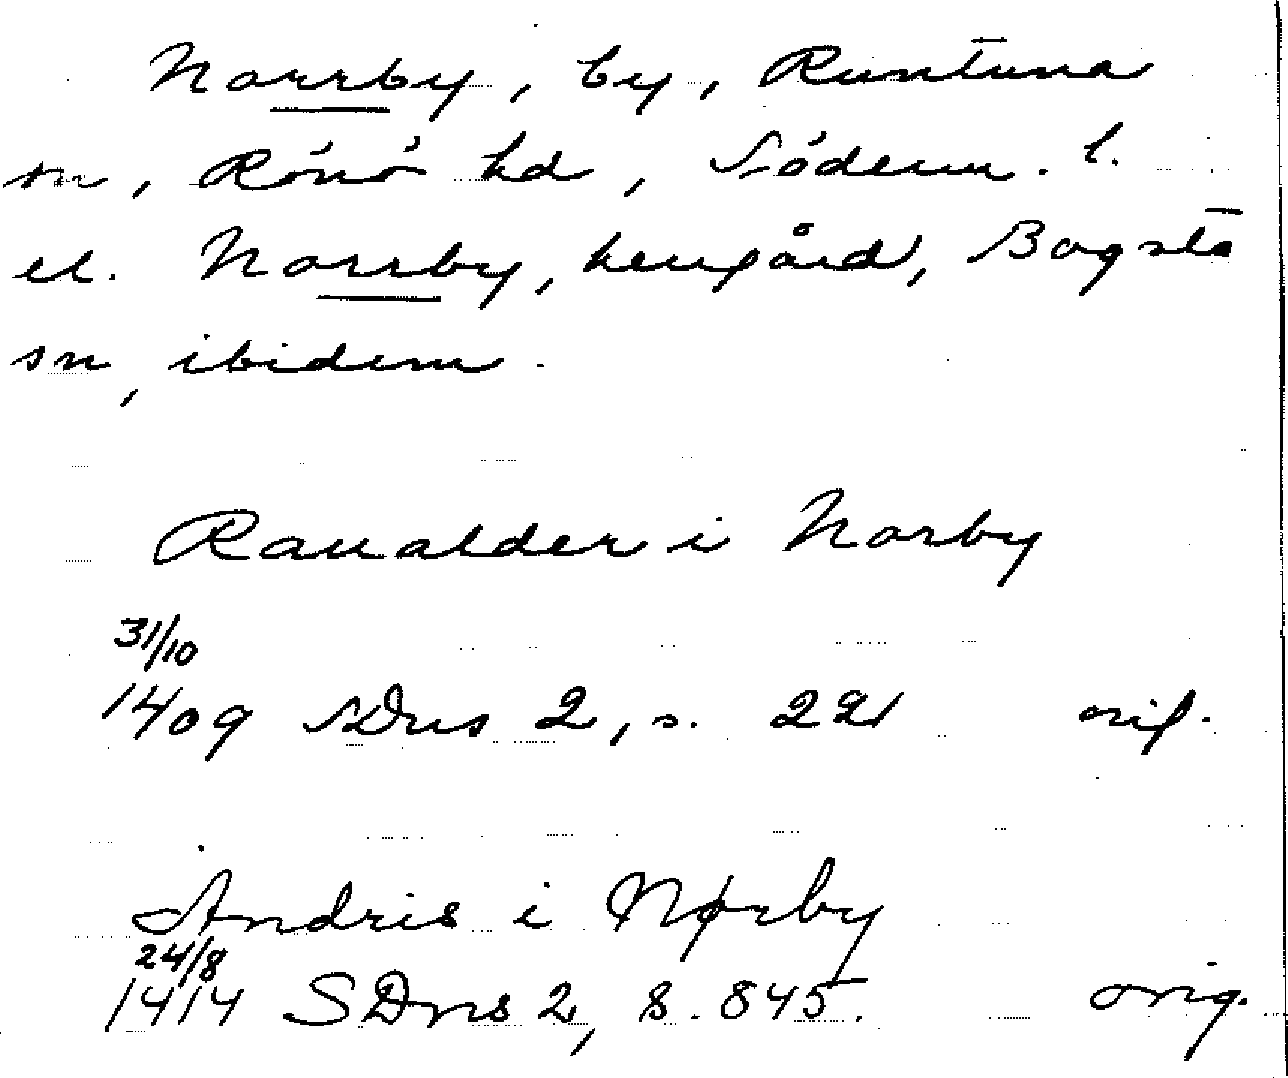 Norrby, by, Runtuna
sn, Rönö hd, Söderm. l.
el. Norrby, herrgård, Bogsta
sn, ibidem.
Raualder i Norby
31/10
1409 SDns 2, s. 221 orig.
Andris i Nørby
24/8
1414 SDns 2, s. 845. orig.